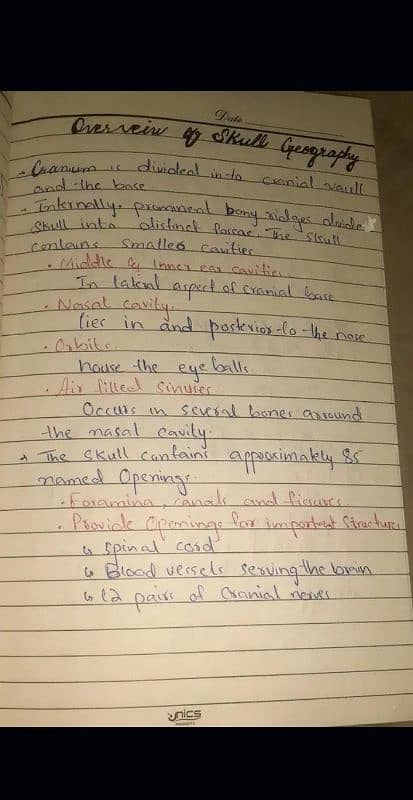 Date
Overveiw of Skull Geography
- Cranium is divided in-to cranial vault
and the base
- Internally, prominent bony ridges divide
Skull into distinct foscae. The Skull
contains smaller cavities
• Middle & Inner ear cavities
In lateral aspect of cranial base
• Nasal cavity.
lies in and posterior to the nose
• Orbits
house the eye balls.
• Air filled Sinuses
Occurs in several bones around
the nasal cavity.
The Skull contains approximately 85
named Openings.
• Foramina, canals and fissures
• Provide Openings for important Structures
spinal cord
Blood vessels serving the brain
12 pairs of Cranial nerves
unics